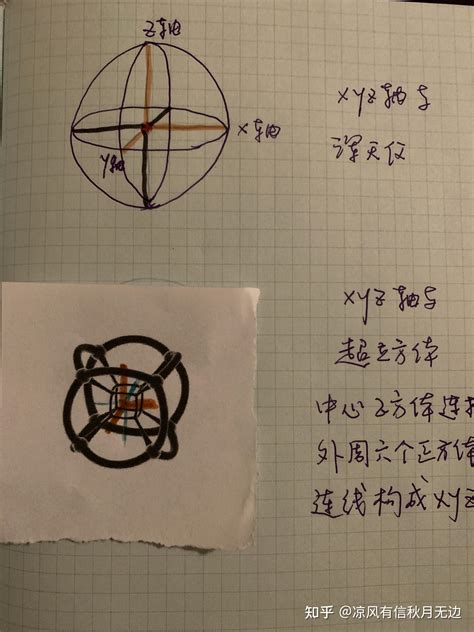 Z轴
X轴
Y轴
XYZ轴与
浑天仪
XYZ轴与
超立方体
中心正方体连接
外周六个正方体
连线构成XYZ
知乎 @凉风有信秋月无边